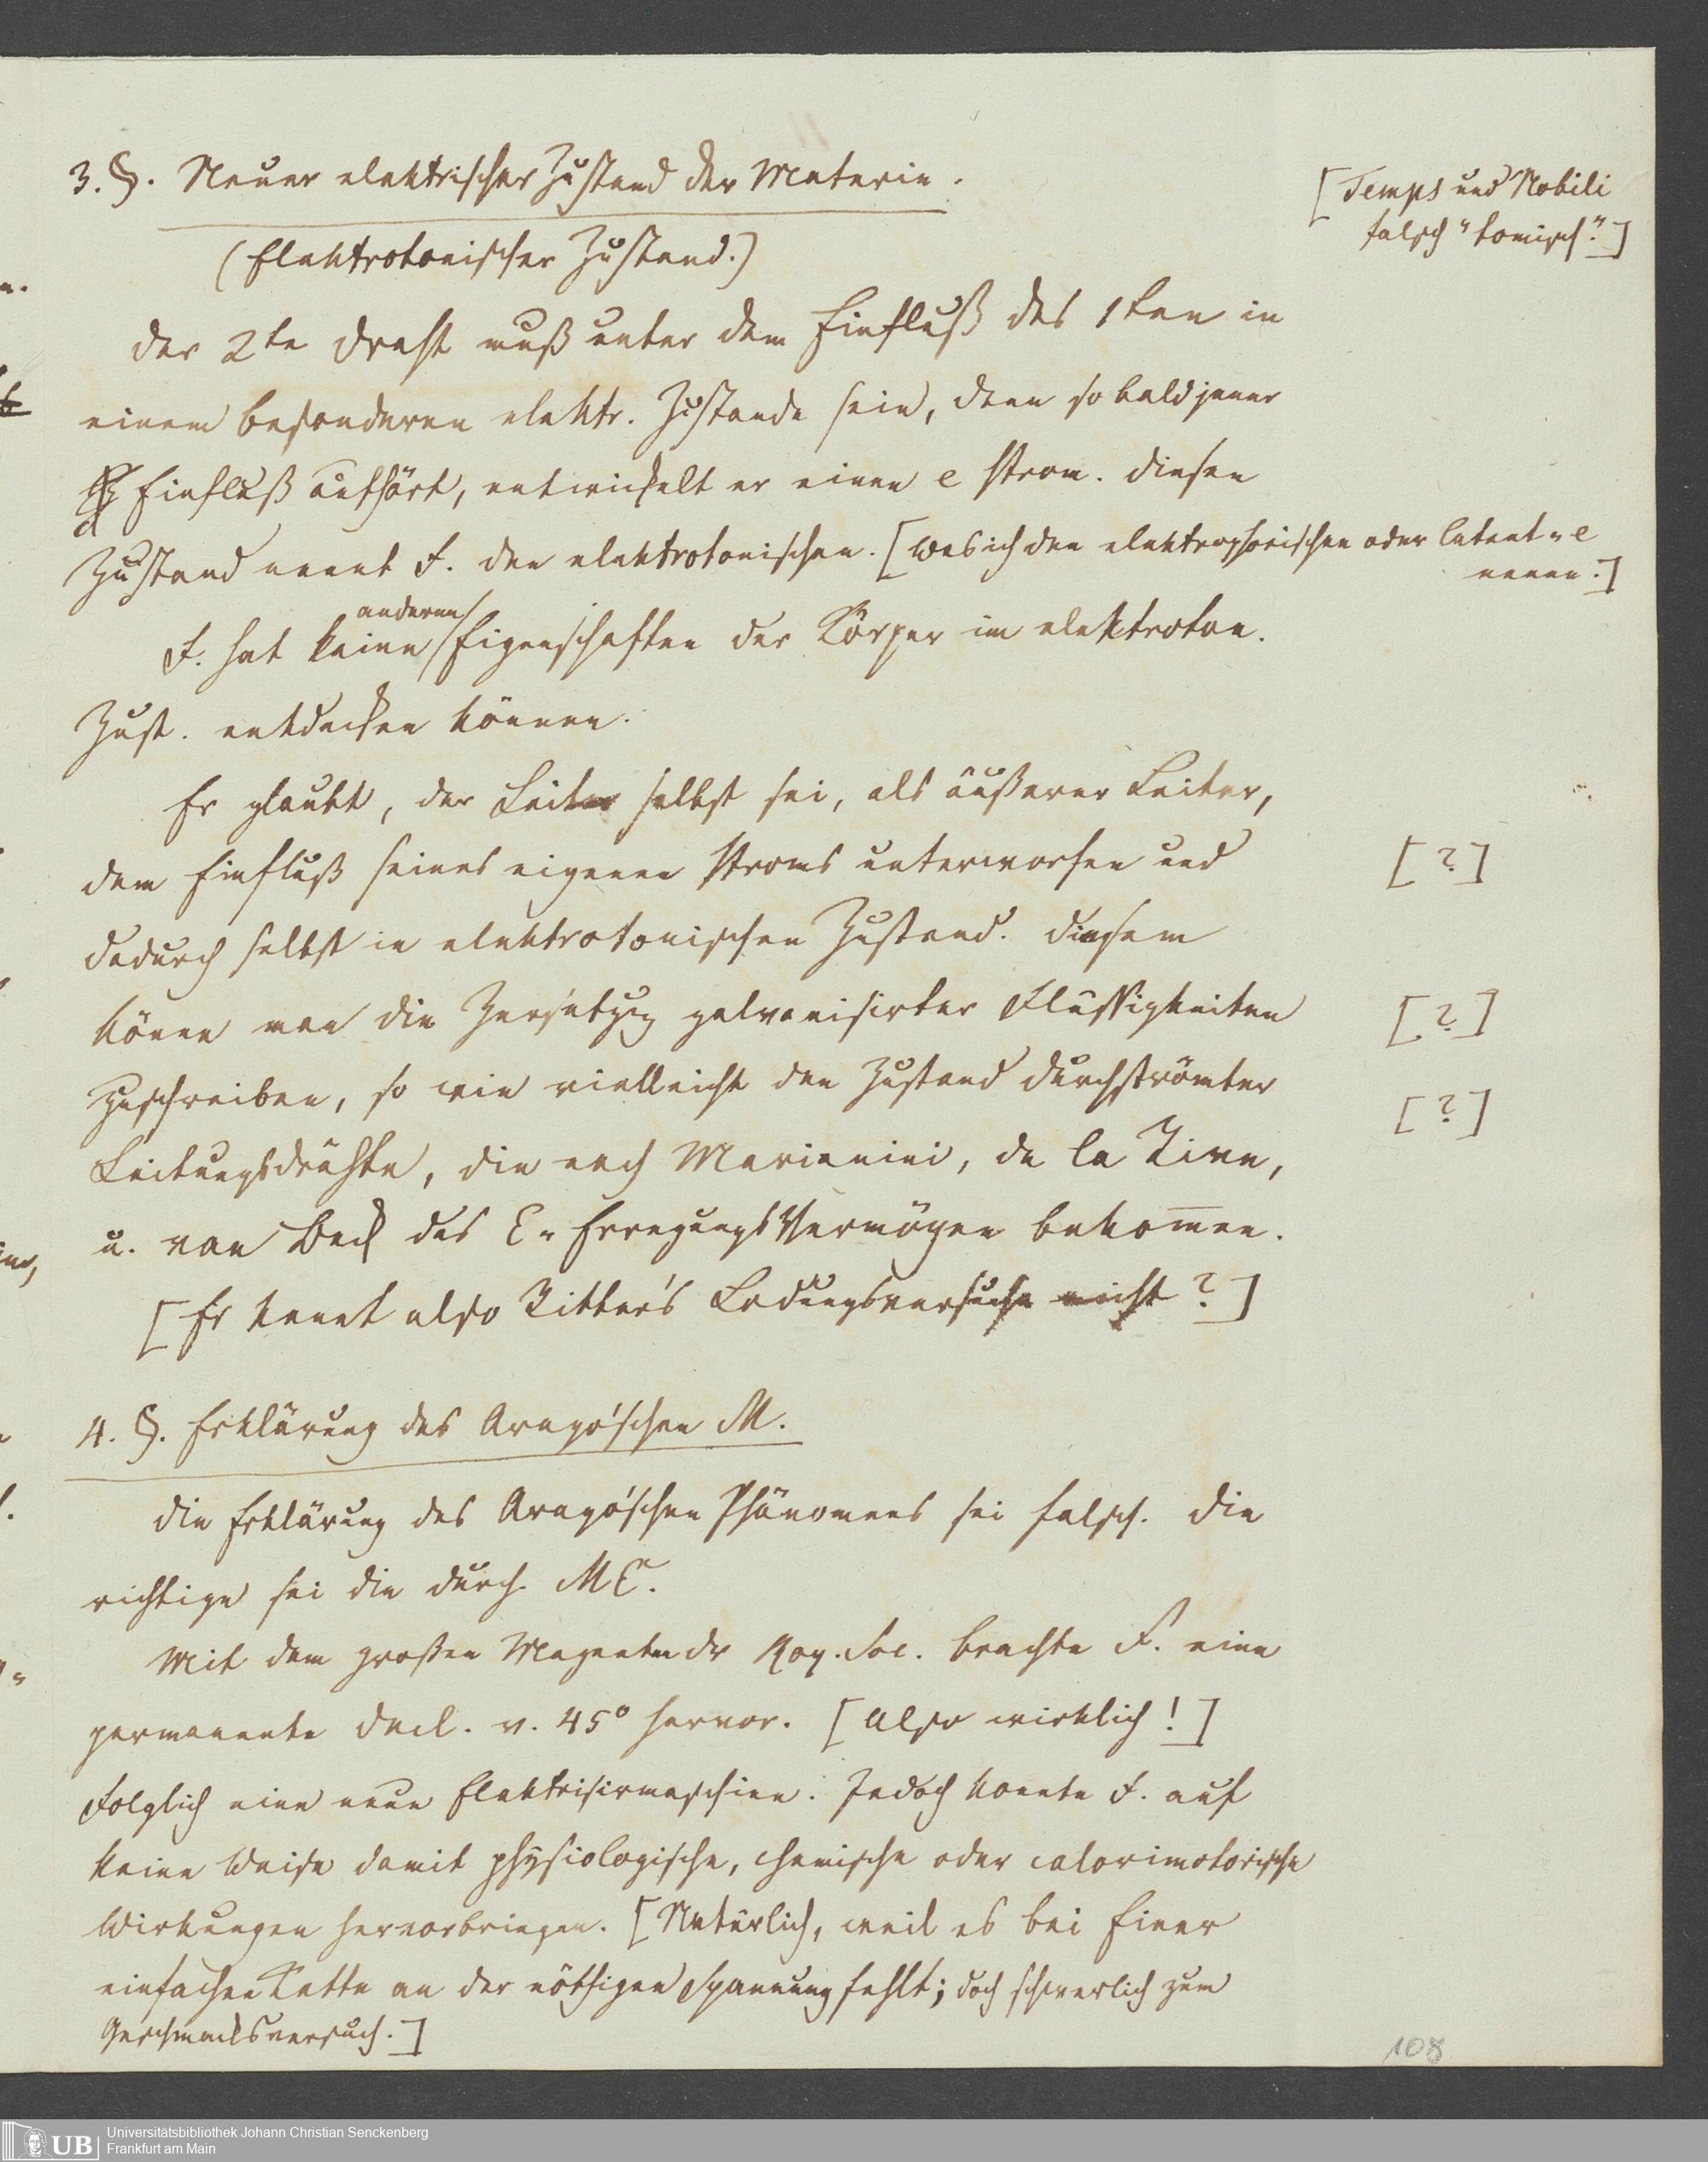 3. §. Neuer elektrischer Zustand der Materie.
[Temps und Nobili
falsch "tomisch".]
(Elektrotonischer Zustand.)
Der 2te Draht muß unter dem Einfluß des 1ten in
einem besonderen elektr. Zustande sein, denn so bald jener
Einfluß aufhört, entwickelt er einen e Strom. Diesen
Zustand nennt F. den elektrotonischen. [Was ich den elektrophorischen oder latent-e
nenne.]
anderen
F. hat keine Eigenschaften der Körper im elektroton.
Zust. entdecken können.
Er glaubt, der Leiter selbst sei, als äußerer Leiter,
dem Einfluß seines eigenen Stroms unterworfen und
[?]
dadurch selbst in elektrotonischen Zustand. Diesem
könne man die Zersetzg galvanisirter Flüssigkeiten
[?]
zuschreiben, so wie vielleicht den Zustand durchströmter
[?]
Leitungsdrähte, die nach Marianini, de la Rive,
u. van Beck das E-Erregungsvermögen bekom̅en.
[Er kennt also Ritter's Ladungsversuche nicht?]
4. §. Erklärung des Arago'schen M.
Die Erklärung des Arago'schen Phänomens sei falsch. Die
richtige sei die durch ME.
Mit dem großen Magneten dr Roy. Soc. brachte F. eine
permanente Decl. v. 45° hervor. [Also wirklich!]
Folglich eine neue Elektrisirmaschine. Jedoch konnte F. auf
keine Weise damit physiologische, chemische oder calorimotorische
Wirkungen hervorbringen. [Natürlich, weil es bei Einer
einfachen Kette an der nöthigen Spannung fehlt; doch schwerlich zum
Geschmacksversuch.]
108
UB
Universitätsbibliothek Johann Christian Senckenberg
Frankfurt am Main